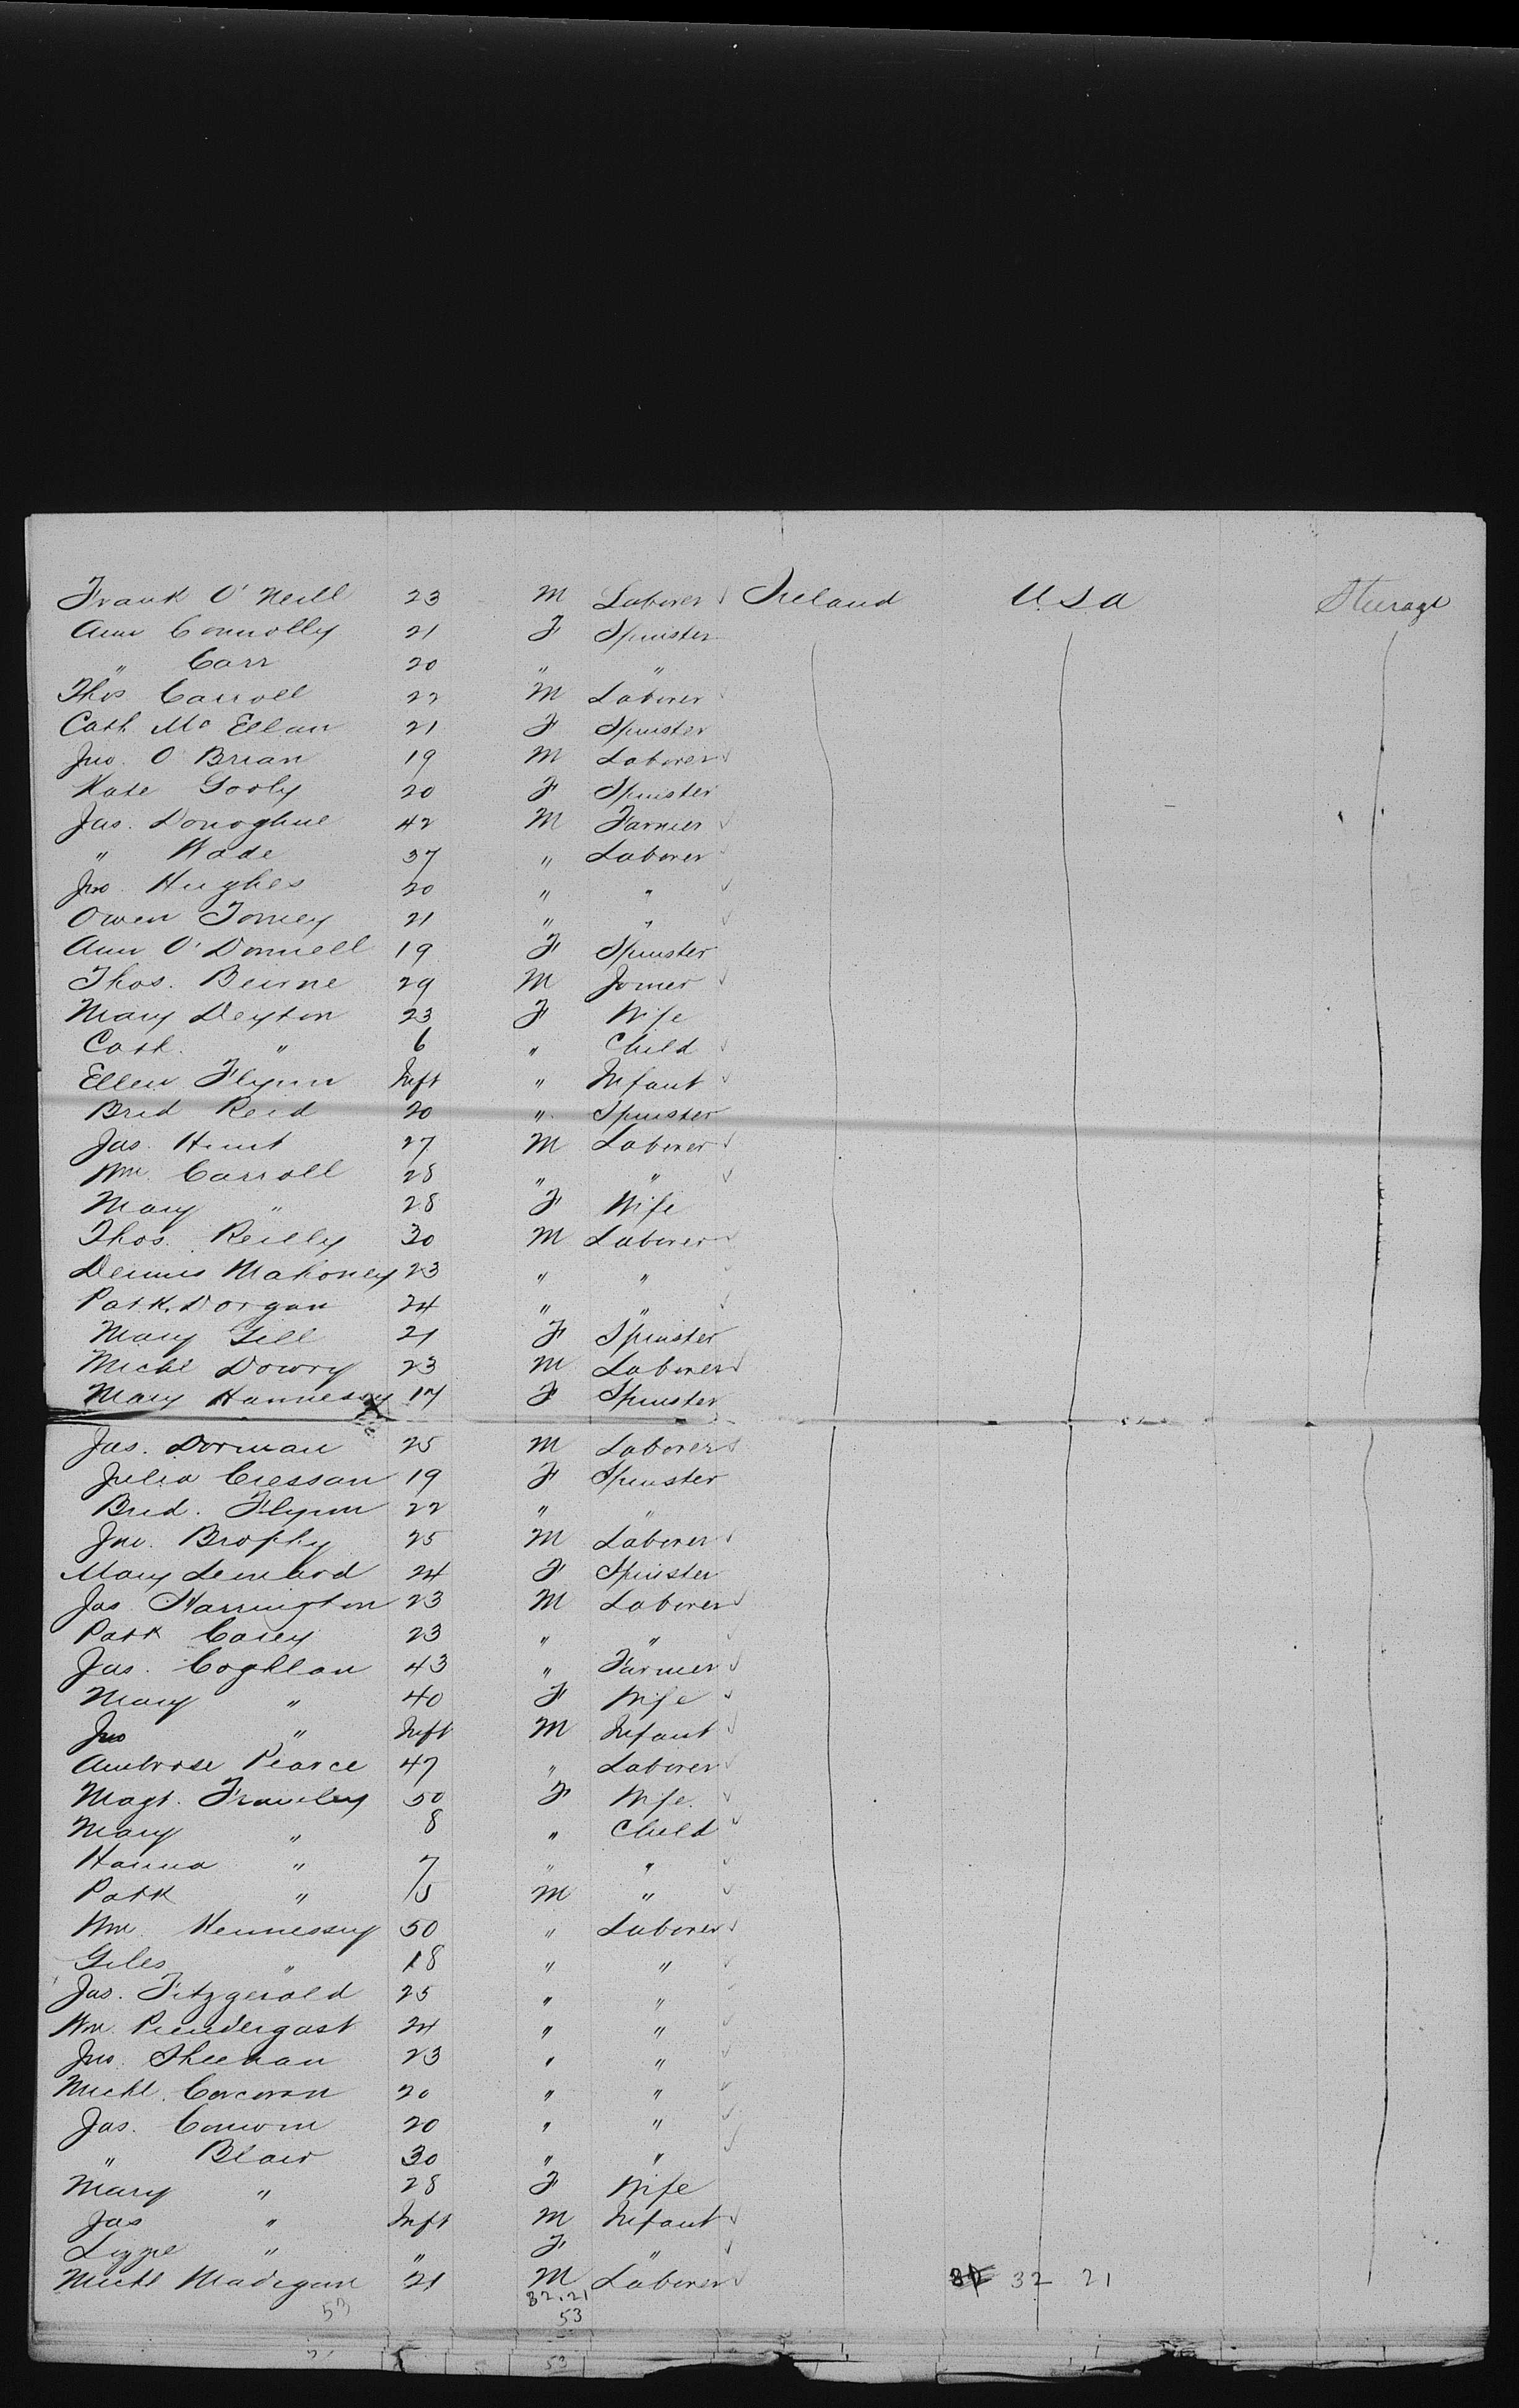 Frank O'Neill 23 M Laborer Ireland U.S.A Steerage
Ann Connolly 21 F Spinster
" Carr 20 " "
Thos. Carroll 22 M Laborer
Cath Mc Ellan 21 F Spinster
Jno. O'Brian 19 M Laborer
Kate Gooly 20 F Spinster
Jas. Donoghue 42 M Farmer
" Wade 37 " Laborer
Jno Hughes 20 " "
Owen Tomey 21 " "
Ann O'Donnell 19 F Spinster
Thos. Beirne 29 M Joiner
Mary Deyton 23 F Wife
Cath. " 6 " Child
Ellen Flynn Inft " Infant
Brid Reid 20 " Spinster
Jas. Hunt 27 M Laborer
Wm. Carroll 28 " "
Mary " 28 F Wife
Thos. Reilly 30 M Laborer
Dennis Mahoney 23 " "
Patk. Dorgan 24 " "
Mary Gill 21 F Spinster
Michl Dowry 23 M Laborer
Mary Hannessy 17 F Spinster
Jas. Dorman 25 M Laborer
Julia Cressan 19 F Spinster
Brid. Flynn 22 " "
Jno. Brophy 25 M Laborer
Mary Lenhard 24 F Spinster
Jas Harrington 23 M Laborer
Patk Carey 23 " "
Jas. Coghlan 43 " Farmer
Mary " 40 F Wife
Jno " Inft M Infant
Ambrose Pearce 47 " Laborer
Magt. Frawley 50 F Wife
Mary " 8 " Child
Hanna " 7 " "
Patk " 5 M "
Wm. Hennessy 50 " Laborer
Giles " 18 " "
Jas. Fitzgerald 25 " "
Wm. Prendergast 24 " "
Jno. Sheehan 23 " "
Michl. Corcoran 20 " "
Jas. Conwm 20 " "
" Blair 30 " "
Mary " 28 F Wife
Jas " Inft M Infant
Lizzie " " F "
Michl Madigan 21 M Laborer 32 21
53 82.21
53
53